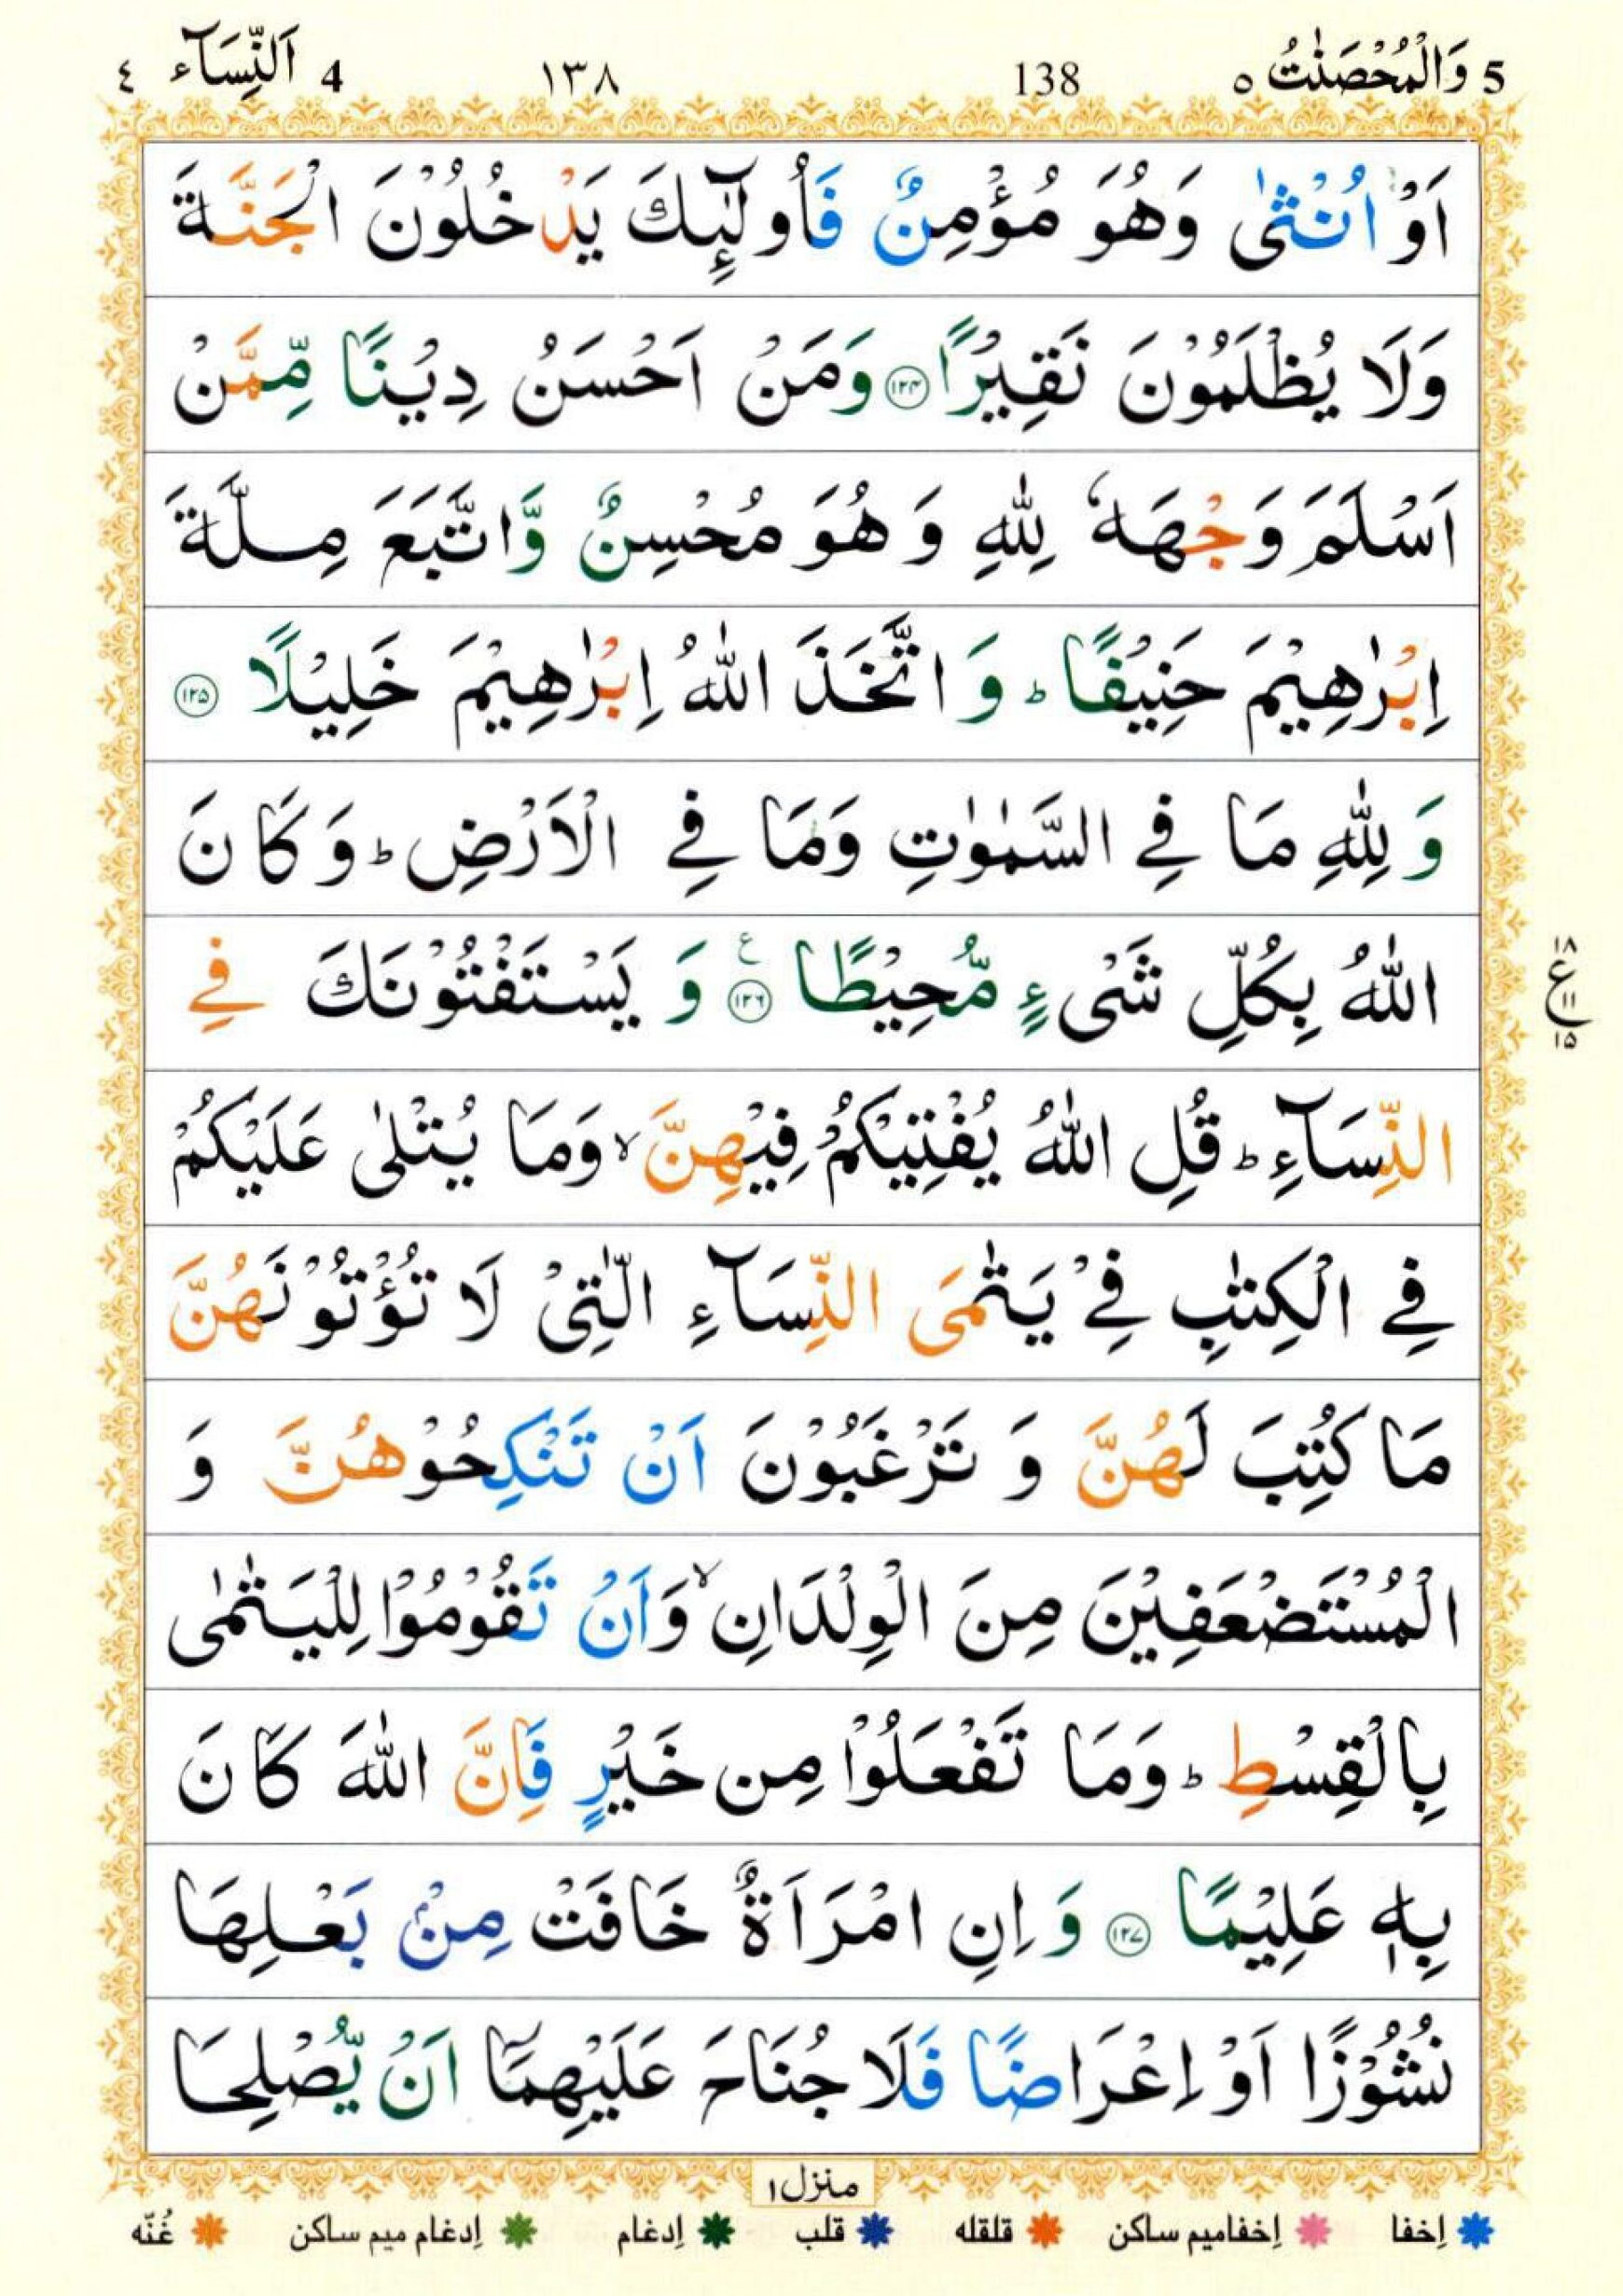 5 وَالْمُحْصَنٰتُ ٥ 138 ١٣٨ 4 اَلنِّسَآء ٤
اَوْ اُنْثٰى وَهُوَ مُؤْمِنٌ فَاُولٰٓئِكَ يَدْخُلُوْنَ الْجَنَّةَ
وَلَا يُظْلَمُوْنَ نَقِيْرًا ﴿۱۲۴﴾ وَمَنْ اَحْسَنُ دِيْنًا مِّمَّنْ
اَسْلَمَ وَجْهَهٗ لِلّٰهِ وَ هُوَ مُحْسِنٌ وَّاتَّبَعَ مِلَّةَ
اِبْرٰهِيْمَ حَنِيْفًا ؕ وَ اتَّخَذَ اللّٰهُ اِبْرٰهِيْمَ خَلِيْلًا ﴿۱۲۵﴾
وَ لِلّٰهِ مَا فِي السَّمٰوٰتِ وَمَا فِي الْاَرْضِ ؕ وَ كَانَ
اللّٰهُ بِكُلِّ شَيْءٍ مُّحِيْطًا ﴿۱۲۶﴾ ع وَ يَسْتَفْتُوْنَكَ فِي
۱۸ ع ۱۱ ۱۵
النِّسَآءِ ؕ قُلِ اللّٰهُ يُفْتِيْكُمْ فِيْهِنَّ ۙ وَمَا يُتْلٰى عَلَيْكُمْ
فِي الْكِتٰبِ فِيْ يَتٰمَى النِّسَآءِ الّٰتِيْ لَا تُؤْتُوْنَهُنَّ
مَا كُتِبَ لَهُنَّ وَ تَرْغَبُوْنَ اَنْ تَنْكِحُوْهُنَّ وَ
الْمُسْتَضْعَفِيْنَ مِنَ الْوِلْدَانِ ۙ وَاَنْ تَقُوْمُوْا لِلْيَتٰمٰى
بِالْقِسْطِ ؕ وَمَا تَفْعَلُوْا مِن خَيْرٍ فَاِنَّ اللّٰهَ كَانَ
بِهٖ عَلِيْمًا ﴿۱۲۷﴾ وَ اِنِ امْرَاَةٌ خَافَتْ مِنْۢ بَعْلِهَا
نُشُوْزًا اَوْ اِعْرَاضًا فَلَا جُنَاحَ عَلَيْهِمَاۤ اَنْ يُّصْلِحَا
منزل ۱
اِخفا اِخفامیم ساکن قلقله قلب اِدغام اِدغام میم ساکن غُنّه